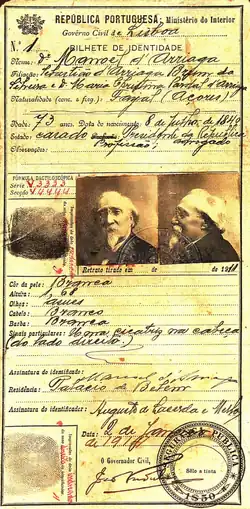 REPÚBLICA PORTUGUESA: Ministério do Interior
Govêrno Civil de Lisboa
N.º 1 BILHETE DE IDENTIDADE
Nome: Dr Manoel d'Arriaga
Filiação: Sebastião d'Arriaga Brum da
Silveira e D. Maria Cristina Pardal d'Arriaga
Naturalidade (conc. e freg.) Fayal (Açores)
Idade: 73 anos. Data do nascimento: 8 de julho de 1840
Estado: casado Profissão: Presidente da República
advogado
Observações:
FÓRMULA DACTILOSCÓPICA
Série V3333
Secção V4444
Retrato tirado em de de 1911
Côr da pele: Branca
Altura: 1,
Olhos:
Cabelo: Branco
Barba: Branca
Sinais particulares: Uma cicatriz na cabeça
(do lado direito)
Assinatura do identificado: Manuel d'Arriaga
Residência: Palacio de Belem
Assinatura do identificador: Augusto de Lacerda e Mello
Data:
O Governador Civil,
SEGURANÇA PUBLICA
Sêlo a tinta